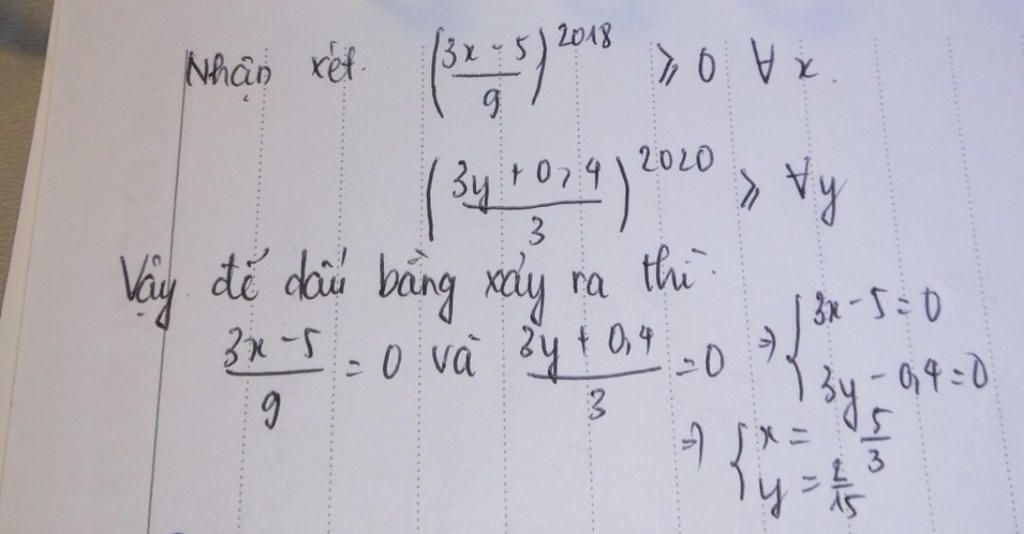 Nhận xét. (3x - 5 / 9)^2018 ⩾ 0 ∀ x.
(3y + 0,4 / 3)^2020 ⩾ ∀y
Vậy để dấu bằng xảy ra thì
3x - 5 / 9 = 0 và 3y + 0,4 / 3 = 0 ⇒ { 3x - 5 = 0
3y - 0,4 = 0
⇒ { x = 5/3
y = 2/15